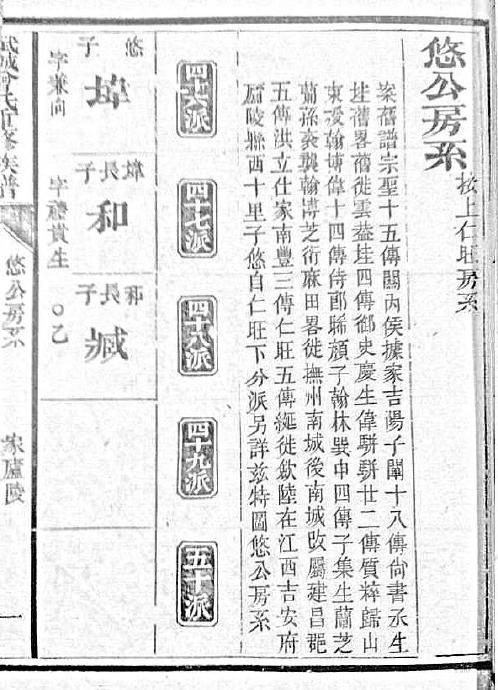 悠公房系
按上仁旺房系
案舊譜宗聖十五傳關內侯據家吉陽子闡十入傳尙書丞生
珪舊畧舊徙雲益珪四傳御史慶生偉駢駢世二傳質粹歸山
東爰翰博偉十四傳侍郎晞顏子翰林巽申四傳子集生蘭芝
蘭孫襲翰博芝術麻田畧徙撫州南城後南城改屬建昌
五傳洪立仕家南豐三傳仁旺五傳綖徙歙陸在江西吉安府
廬陵縣西十里子悠自仁旺下分派另詳茲特圖悠公房系
四六派
四七派
四十八派
四十九派
五十派
悠子
埄
字兼向
長子
和
字禮貴生
和長子
臧
○乙
武城曾氏重修族譜
悠公房系
家廬陵
一